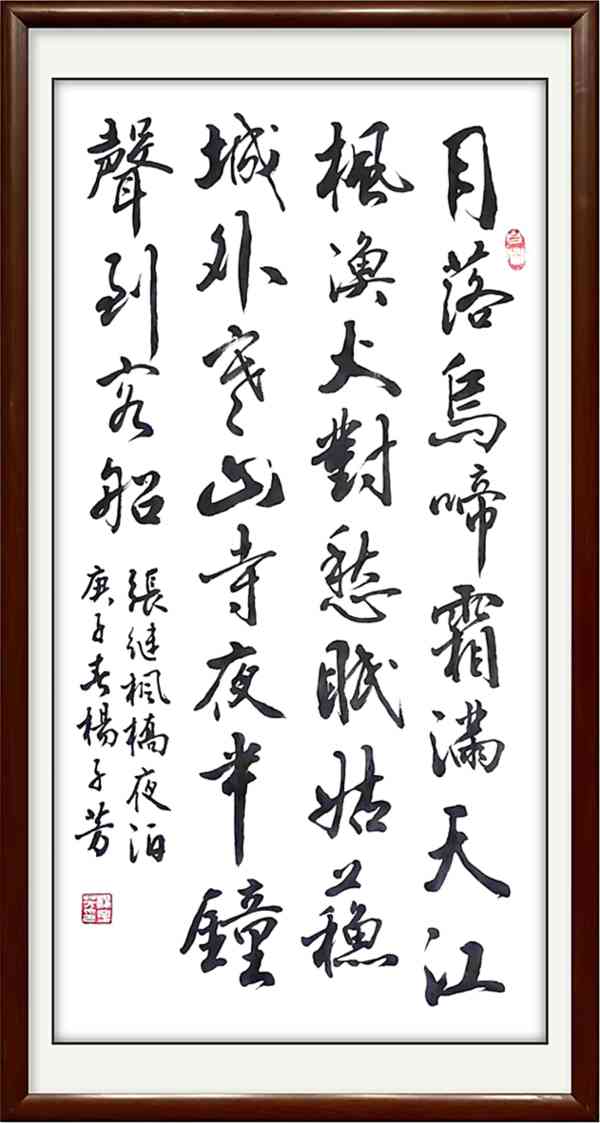 月落烏啼霜滿天江
楓漁火對愁眠姑蘇
城外寒山寺夜半鐘
聲到客船
張继楓橋夜泊
庚子春楊子芳